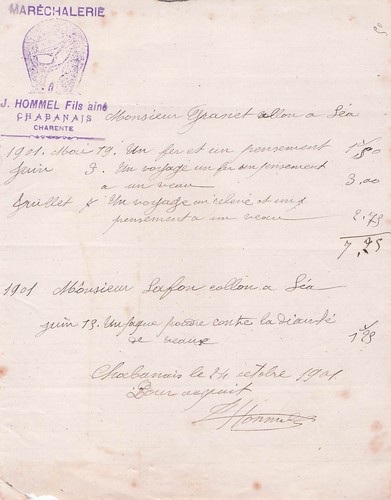 MARÉCHALERIE
J. HOMMEL Fils ainé
CHABANAIS
CHARENTE
Monsieur Granet collon a Léa
1901. Mai 19. Un fer et un pensement 1,50
Juin 3. Un voyage un fer un pensement
a un veau 3,00
Juillet Un voyage un relevé et un
pensement a un veau 2.75
7,25
1901 Monsieur Lafon collon a Léa
juin 13. Un paque poudre contre la diarrhé
de veaux 1,25
Chabanais le 24 octobre 1901
Pour acquit
Hommel